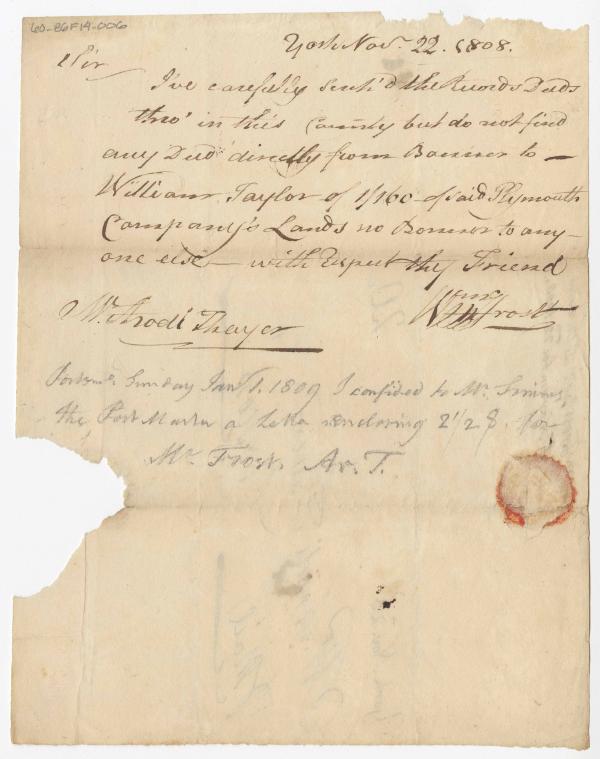 60-86F14-006
York Nov. 22. 1808.
Sir
I've carefully serch'd the Records Deeds
thro' in this County but do not find
any Deed directly from Bonner to —
William Taylor of 1/160 of said Plymouth
Company's Lands no Bonner to any-
one else — with Respect thy Friend
Wm Frost
Mr. Arodi Thayer
Portsmo Sunday Jany 1. 1809 I confided to Mr. Simms,
the Post Master a Letter enclosing 2 1/2 $. for
Mr Frost. Ar. T.